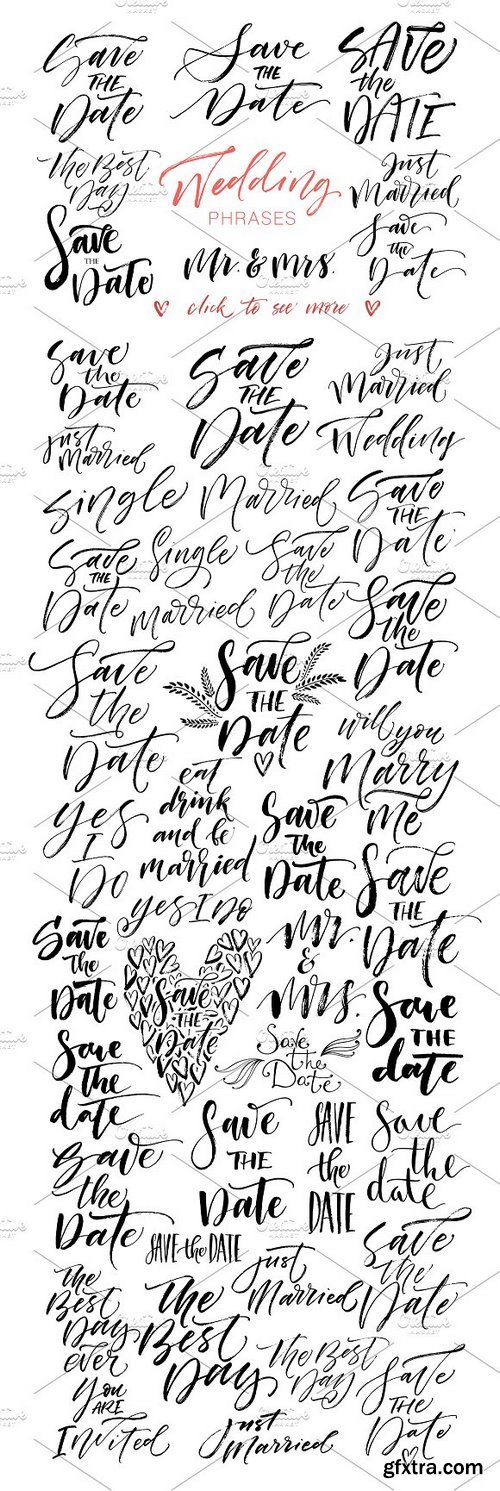 Save
THE
Date
Save
THE
Date
SAVE
the
DATE
The Best
Day
Wedding
PHRASES
Just
Married
Save
THE
Date
Mr. & Mrs.
Save
the
Date
click to see more
Save
the
Date
Save
THE
Date
Just
Married
Just
Married
Wedding
Single
Married
Save
THE
Date
Save
THE
Date
Single
Married
Save
the
Date
Save
the
Date
Save
the
Date
Save
THE
Date
will you
Marry
Me
Yes
I
Do
eat
drink
and be
married
Save
The
Date
Save
THE
Date
yes I Do
Save
the
Date
Save
THE
Date
Mr.
&
Mrs.
Save
THE
date
Save
the
Date
Save
the
date
Save
THE
Date
SAVE
the
DATE
Save
the
date
Save
the
Date
SAVE the DATE
Just
Married
Save
the
Date
The
Best
Day
ever
The
Best
Day
The Best
Day
Save
THE
Date
you
ARE
Invited
Just
Married
gfxtra.com